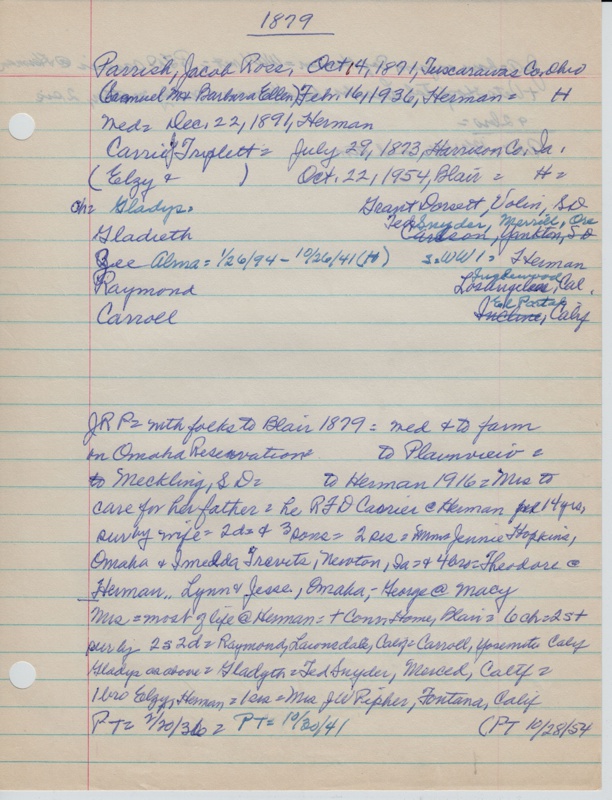 1879
Parrish, Jacob Ross, Oct 14, 1871, Tuscarawas Co, Ohio
(Samuel M & Barbara Ellen) Feb. 16, 1936, Herman = H
med = Dec. 22, 1891, Herman
Carrie Triplett = July 29, 1873, Harrison Co, Ia.
(Elzy & ) Oct. 22, 1954, Blair = H =
Ch = Gladys = Grant Dorsett, Volin, S.D
Ted Snyder, Merrill, Ore
Gladieth Carlson, Yankton, S D
Bee Alma = 1/26/94 - 10/26/41 (H) s. WW 1 = Herman
Inglewood
Raymond Los Angeles, Cal.
El Portal
Carroll Calif
J R P = with folks to Blair 1879 = med & to farm
on Omaha Reservation to Plainview =
to Meckling, S.D = to Herman 1916 = Mrs to
care for her father = he RFD Carrier @ Herman 14 yrs,
sur by wife = 2d = & 3 sons = 2 sis = Mmes Jennie Hopkins,
Omaha & Imelda Travits, Newton, Ia = & 4 bro = Theodore @
Herman, Lynn & Jesse, Omaha, - George @ Macy
Mrs = most of life @ Herman = + Conn Home, Blair = 6 ch = 2s+
sur by 2s 2d = Raymond, Lawndale, Calif = Carroll, Yosemite Calif
Gladys as above = Gladyth = Ted Snyder, Merced, Calif =
1 bro Elzy, Herman = 1 sis = Mrs J W Pipher, Fontana, Calif
P T = 2/20/36 = P T = 10/30/41 (P T 10/28/54